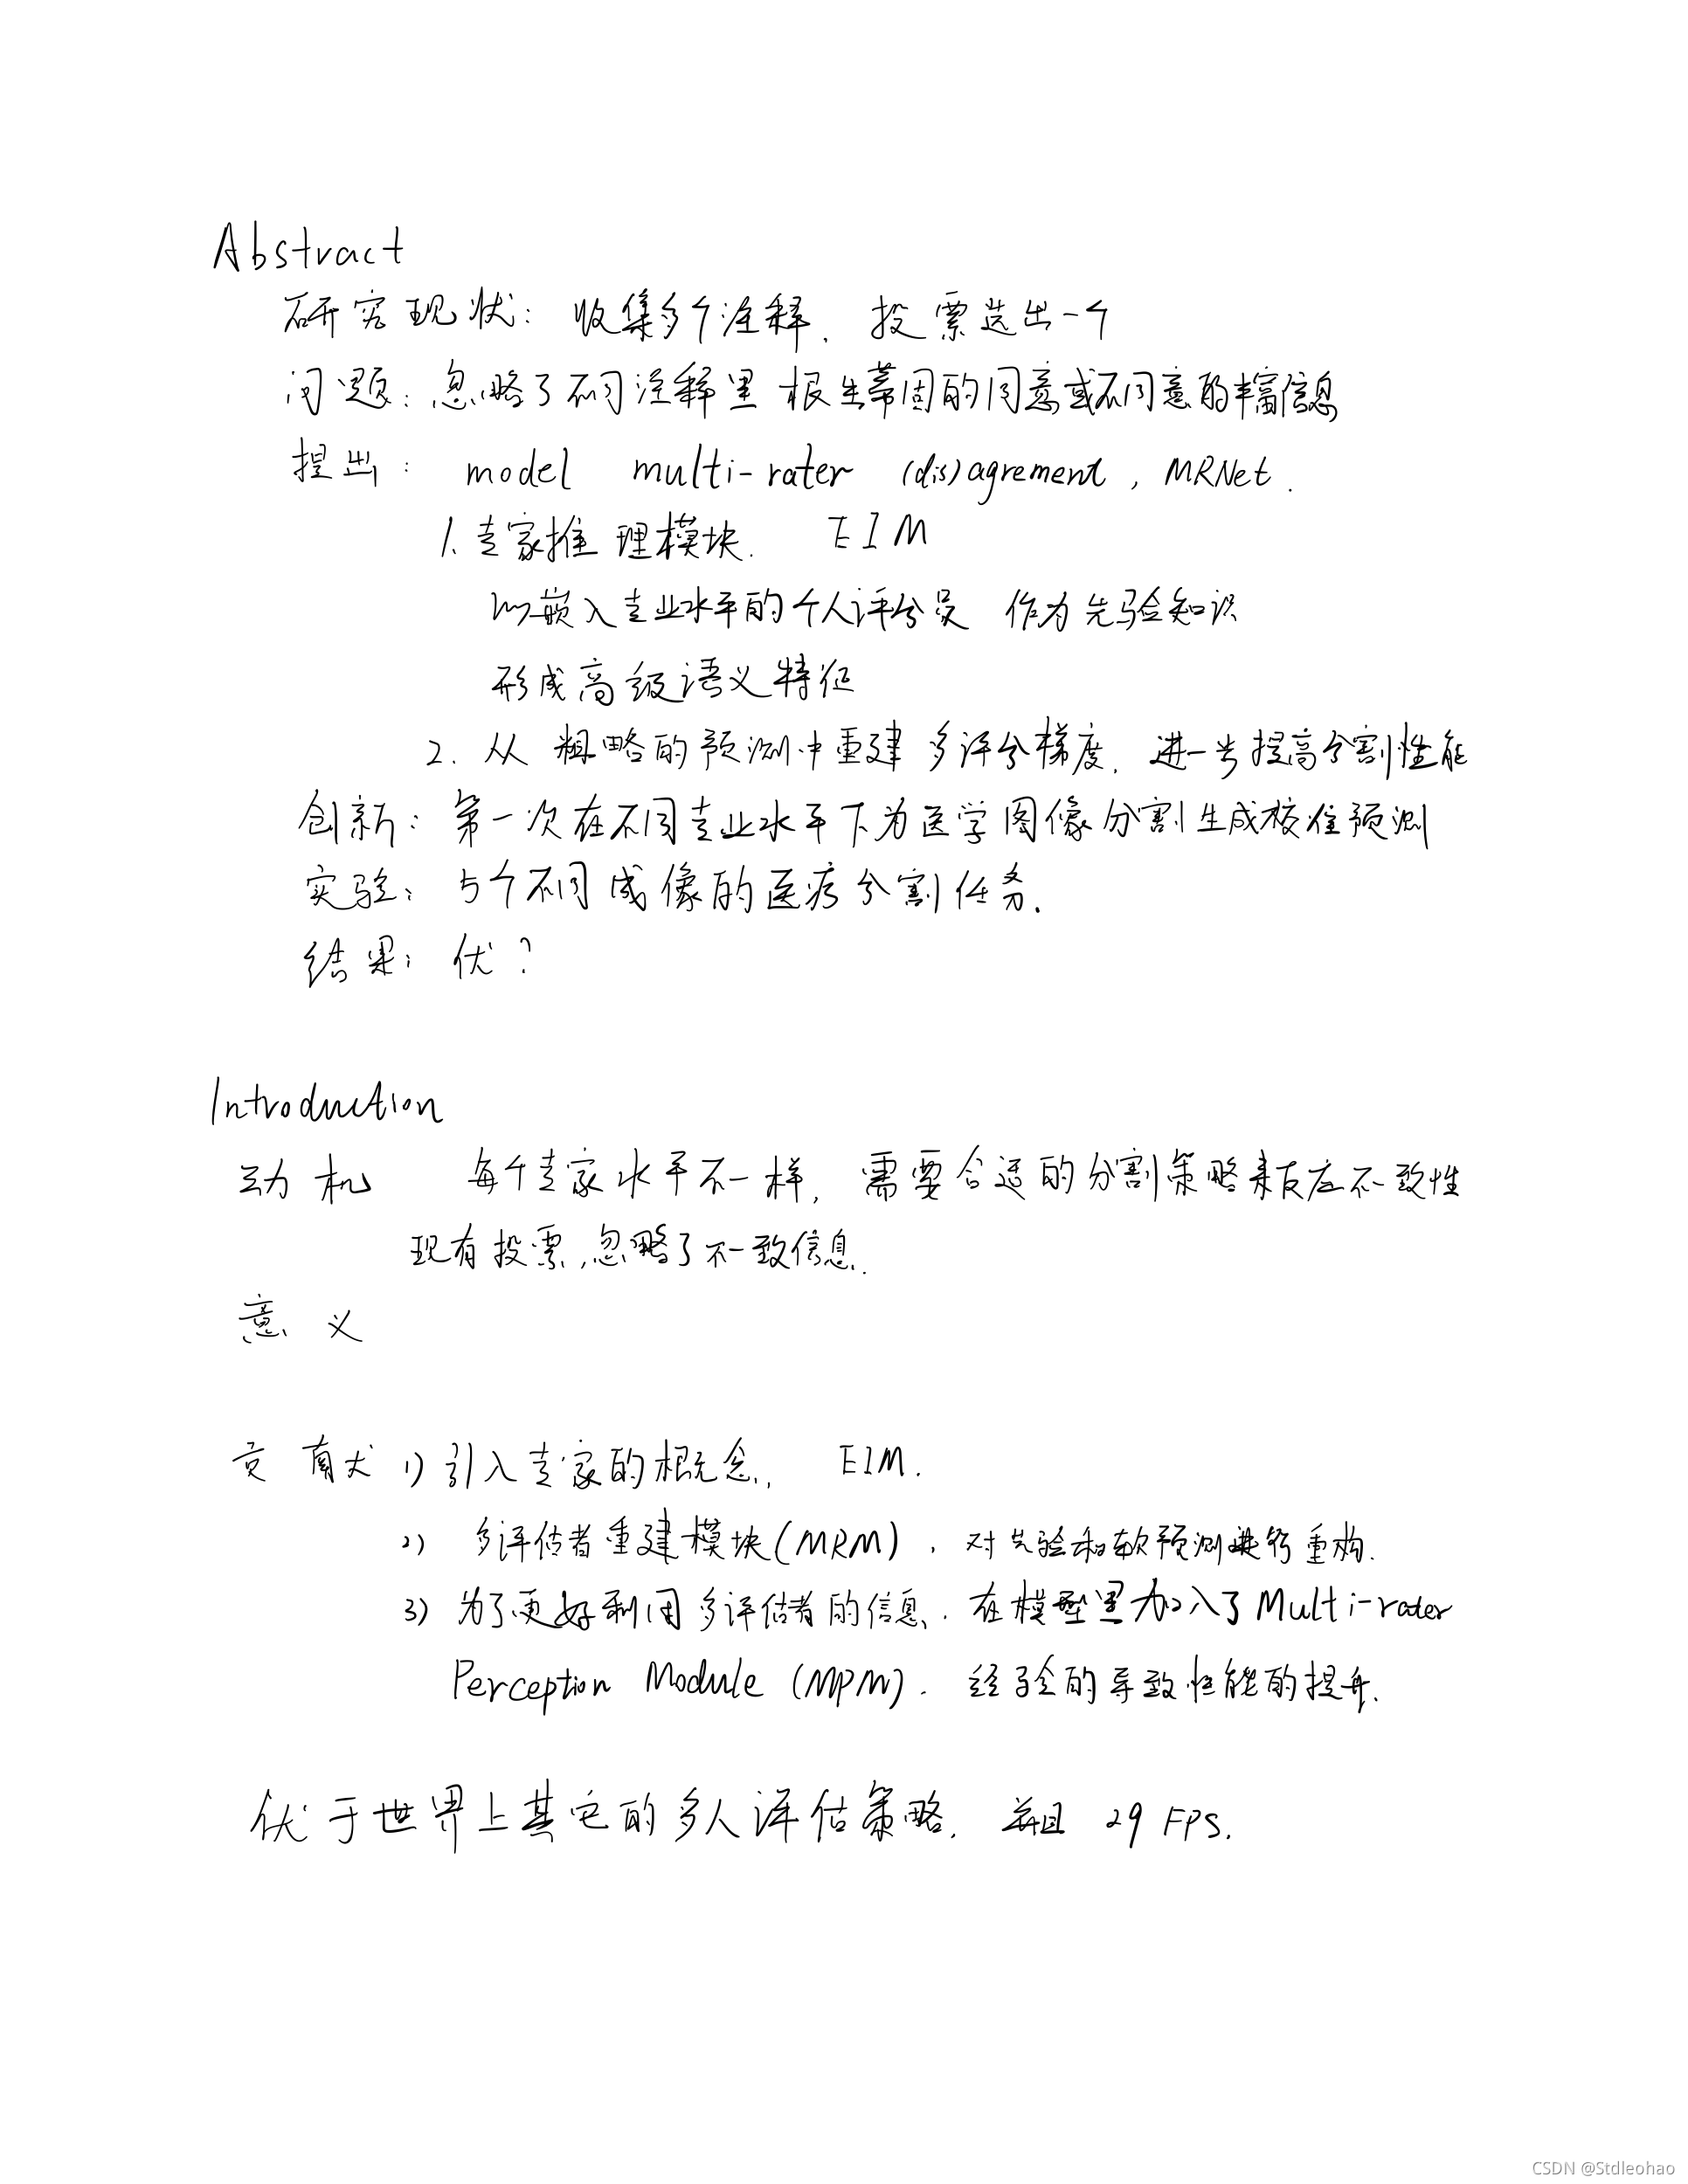 Abstract
研究现状: 收集多个注释, 投票选出一个
问题: 忽略了不同注释里根生蒂固的同意或不同意的丰富信息
提出: model multi-rater (dis)agrement, MRNet.
1. 专家推理模块. EIM
以嵌入专业水平的个人评分员 作为先验知识
形成高级语义特征
2. 从粗略的预测中重建多评分梯度, 进一步提高分割性能
创新: 第一次在不同专业水平下为医学图像分割生成校准预测
实验: 5个不同成像的医疗分割任务.
结果: 优?
Introduction
动机 每个专家水平不一样, 需要合适的分割策略来反应不一致性
现有投票,忽略了不一致信息.
意义
贡献 1) 引入专家的概念, EIM.
2) 多评估者重建模块(MRM), 对先验和软预测进行重构.
3) 为了更好利用多评估者的信息, 在模型里加入了Multi-rater
Perception Module (MPM). 经验的导致性能的提升.
优于世界上其它的多人评估策略, 并且 29 FPS.
CSDN @Stdleohao